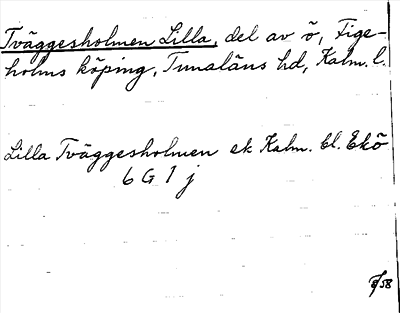 Tväggesholmen Lilla, del av ö, Fige-
holms köping, Tunaläns hd, Kalm. l.
Lilla Tväggesholmen ek Kalm. bl. Ekö
6 G 1 j